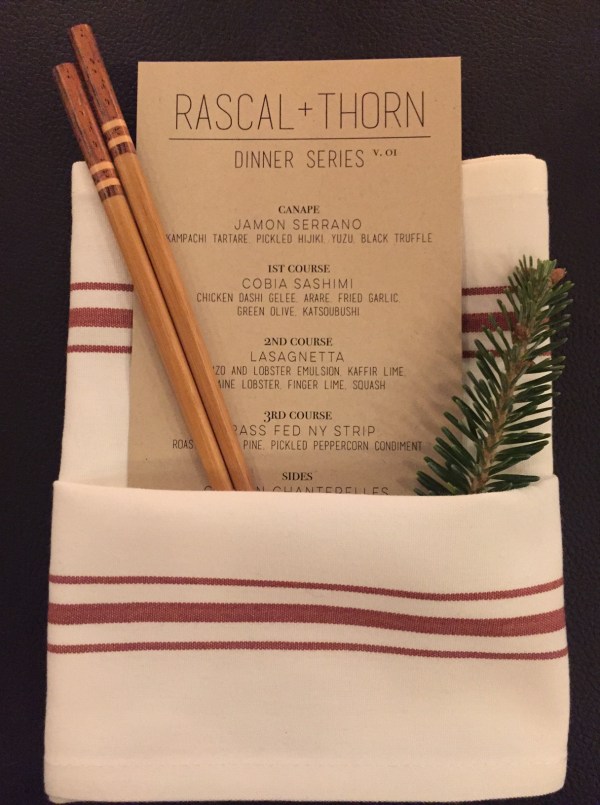 RASCAL+THORN
DINNER SERIES V. 01
CANAPE
JAMON SERRANO
KAMPACHI TARTARE, PICKLED HIJIKI, YUZU, BLACK TRUFFLE
1ST COURSE
COBIA SASHIMI
CHICKEN DASHI GELEE, ARARE, FRIED GARLIC,
GREEN OLIVE, KATSOUBUSHI
2ND COURSE
LASAGNETTA
AND LOBSTER EMULSION, KAFFIR LIME,
LOBSTER, FINGER LIME, SQUASH
3RD COURSE
FED NY STRIP
PINE, PICKLED PEPPERCORN CONDIMENT
SIDES
CHANTERELLES